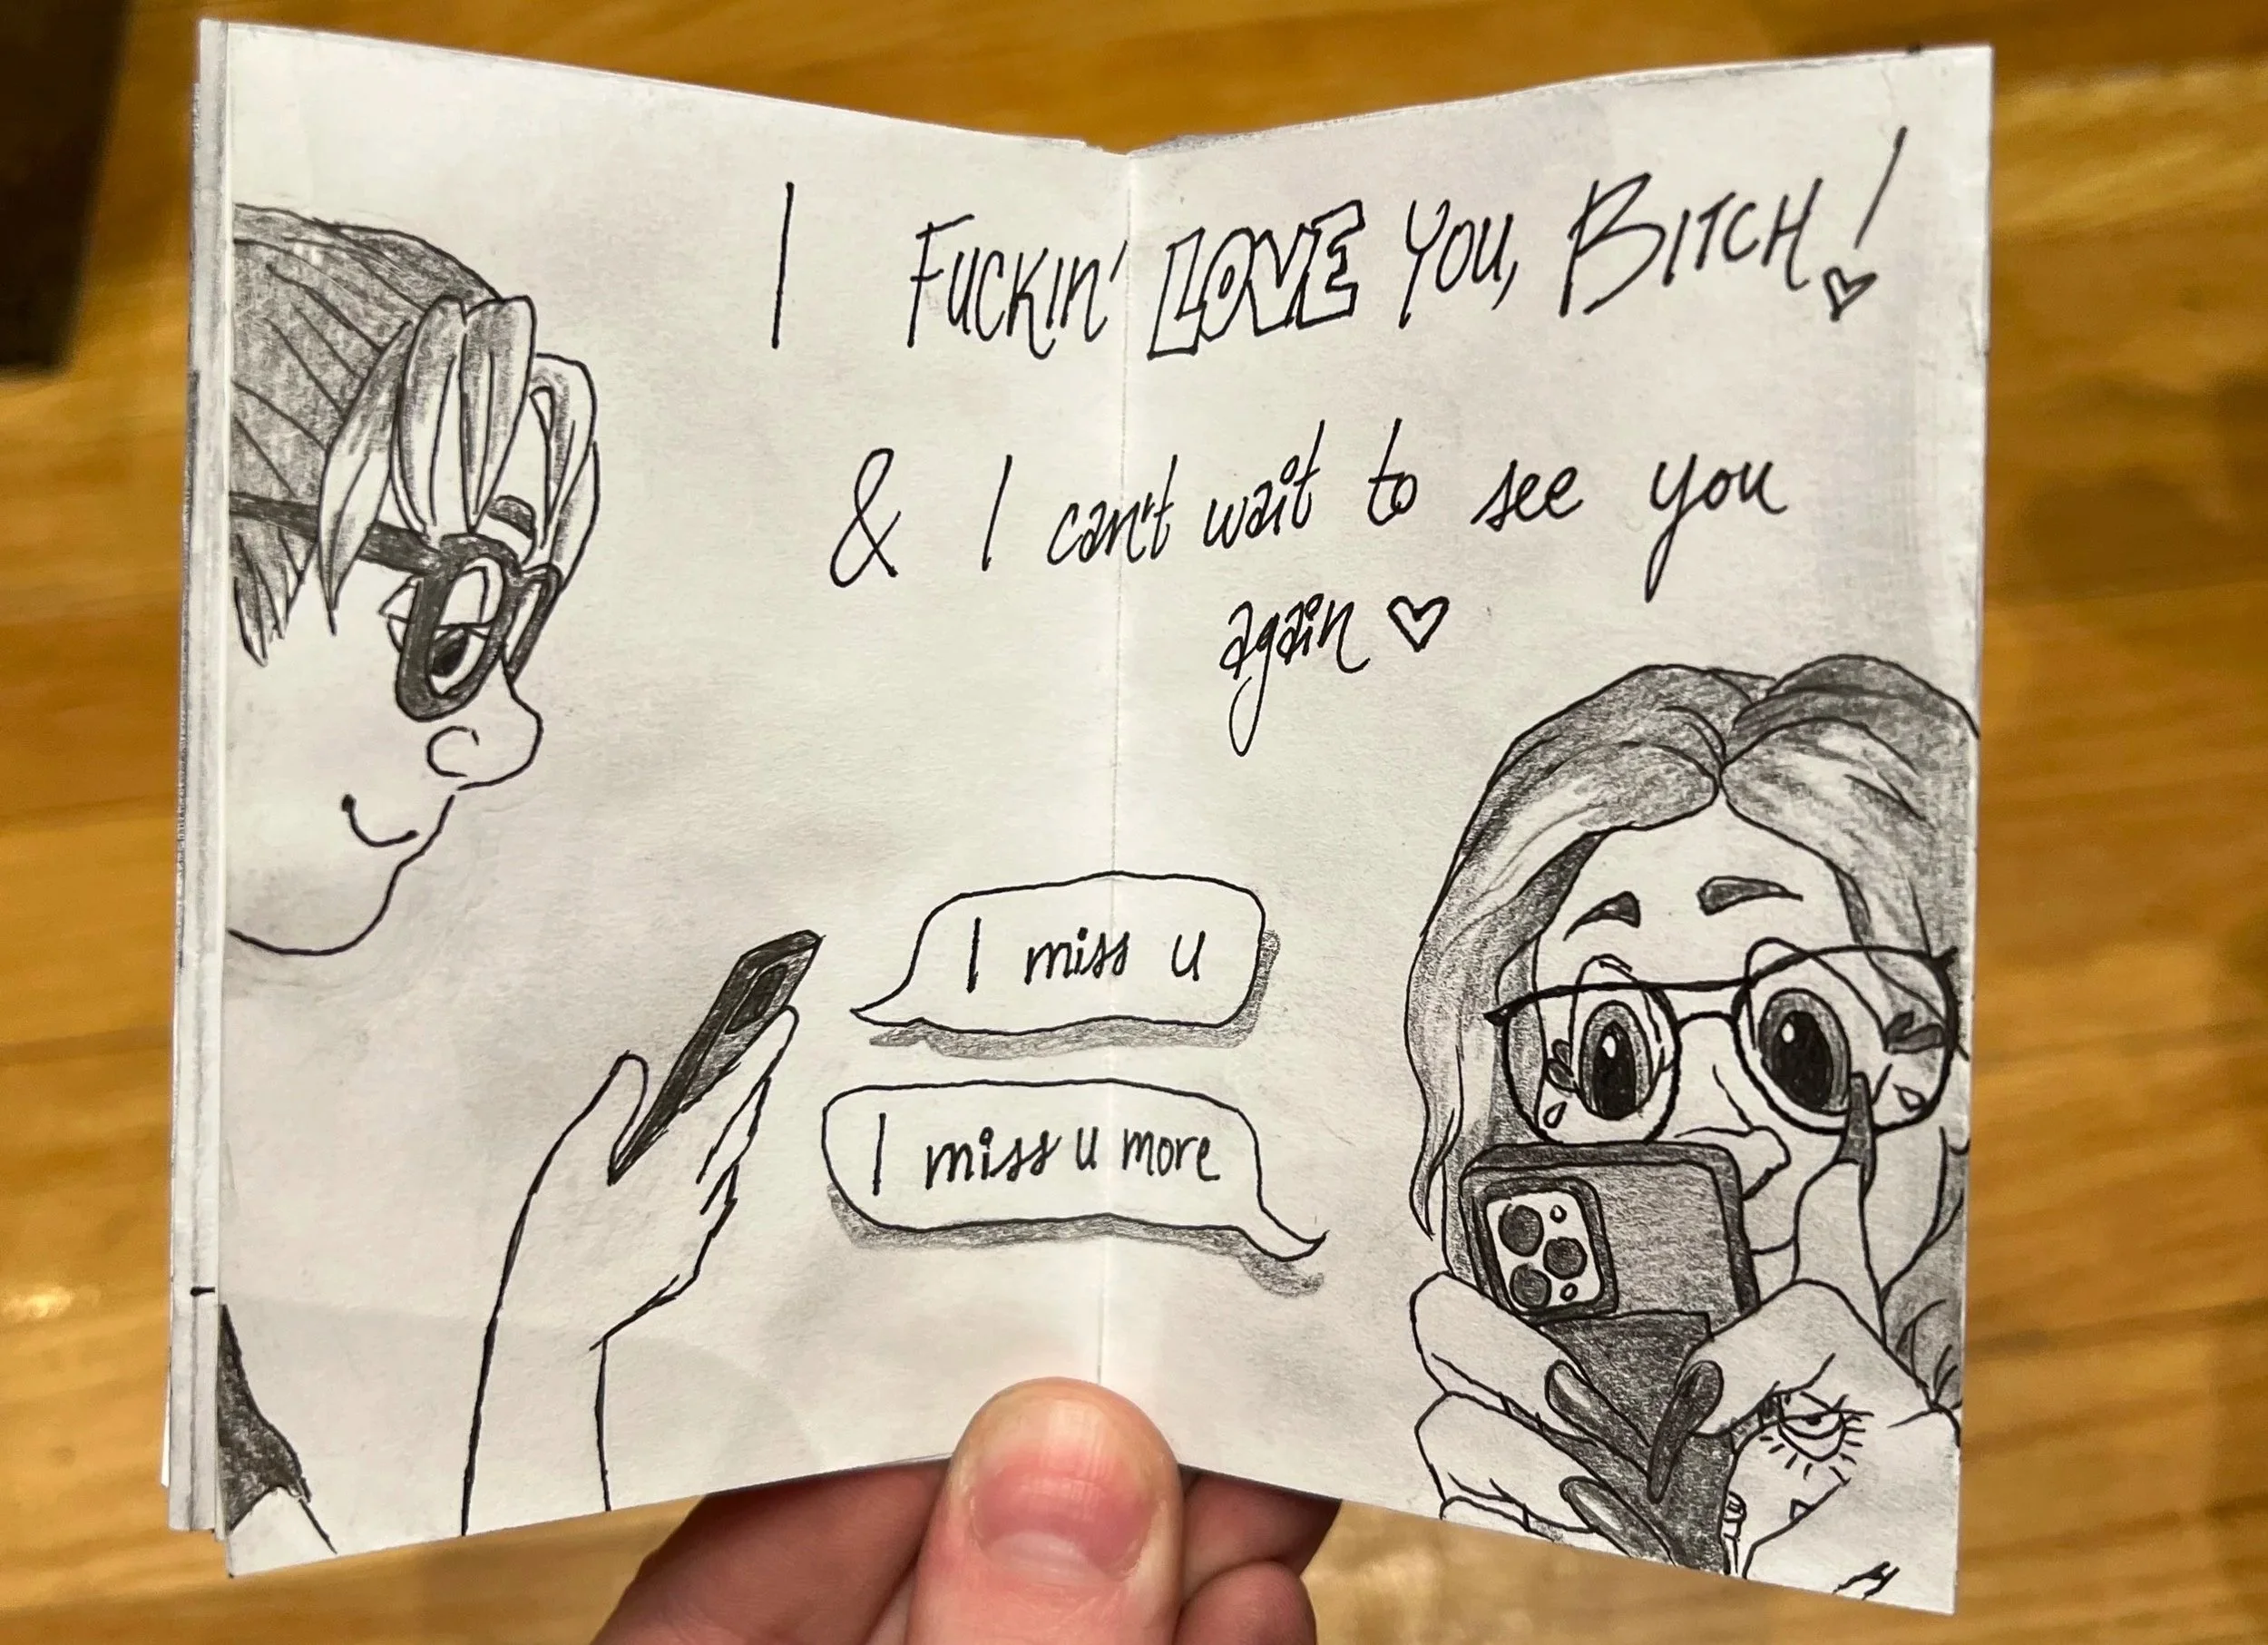 I FUCKIN' LOVE YOU, BITCH!
& I can't wait to see you
again ♡
I miss u
I miss u more